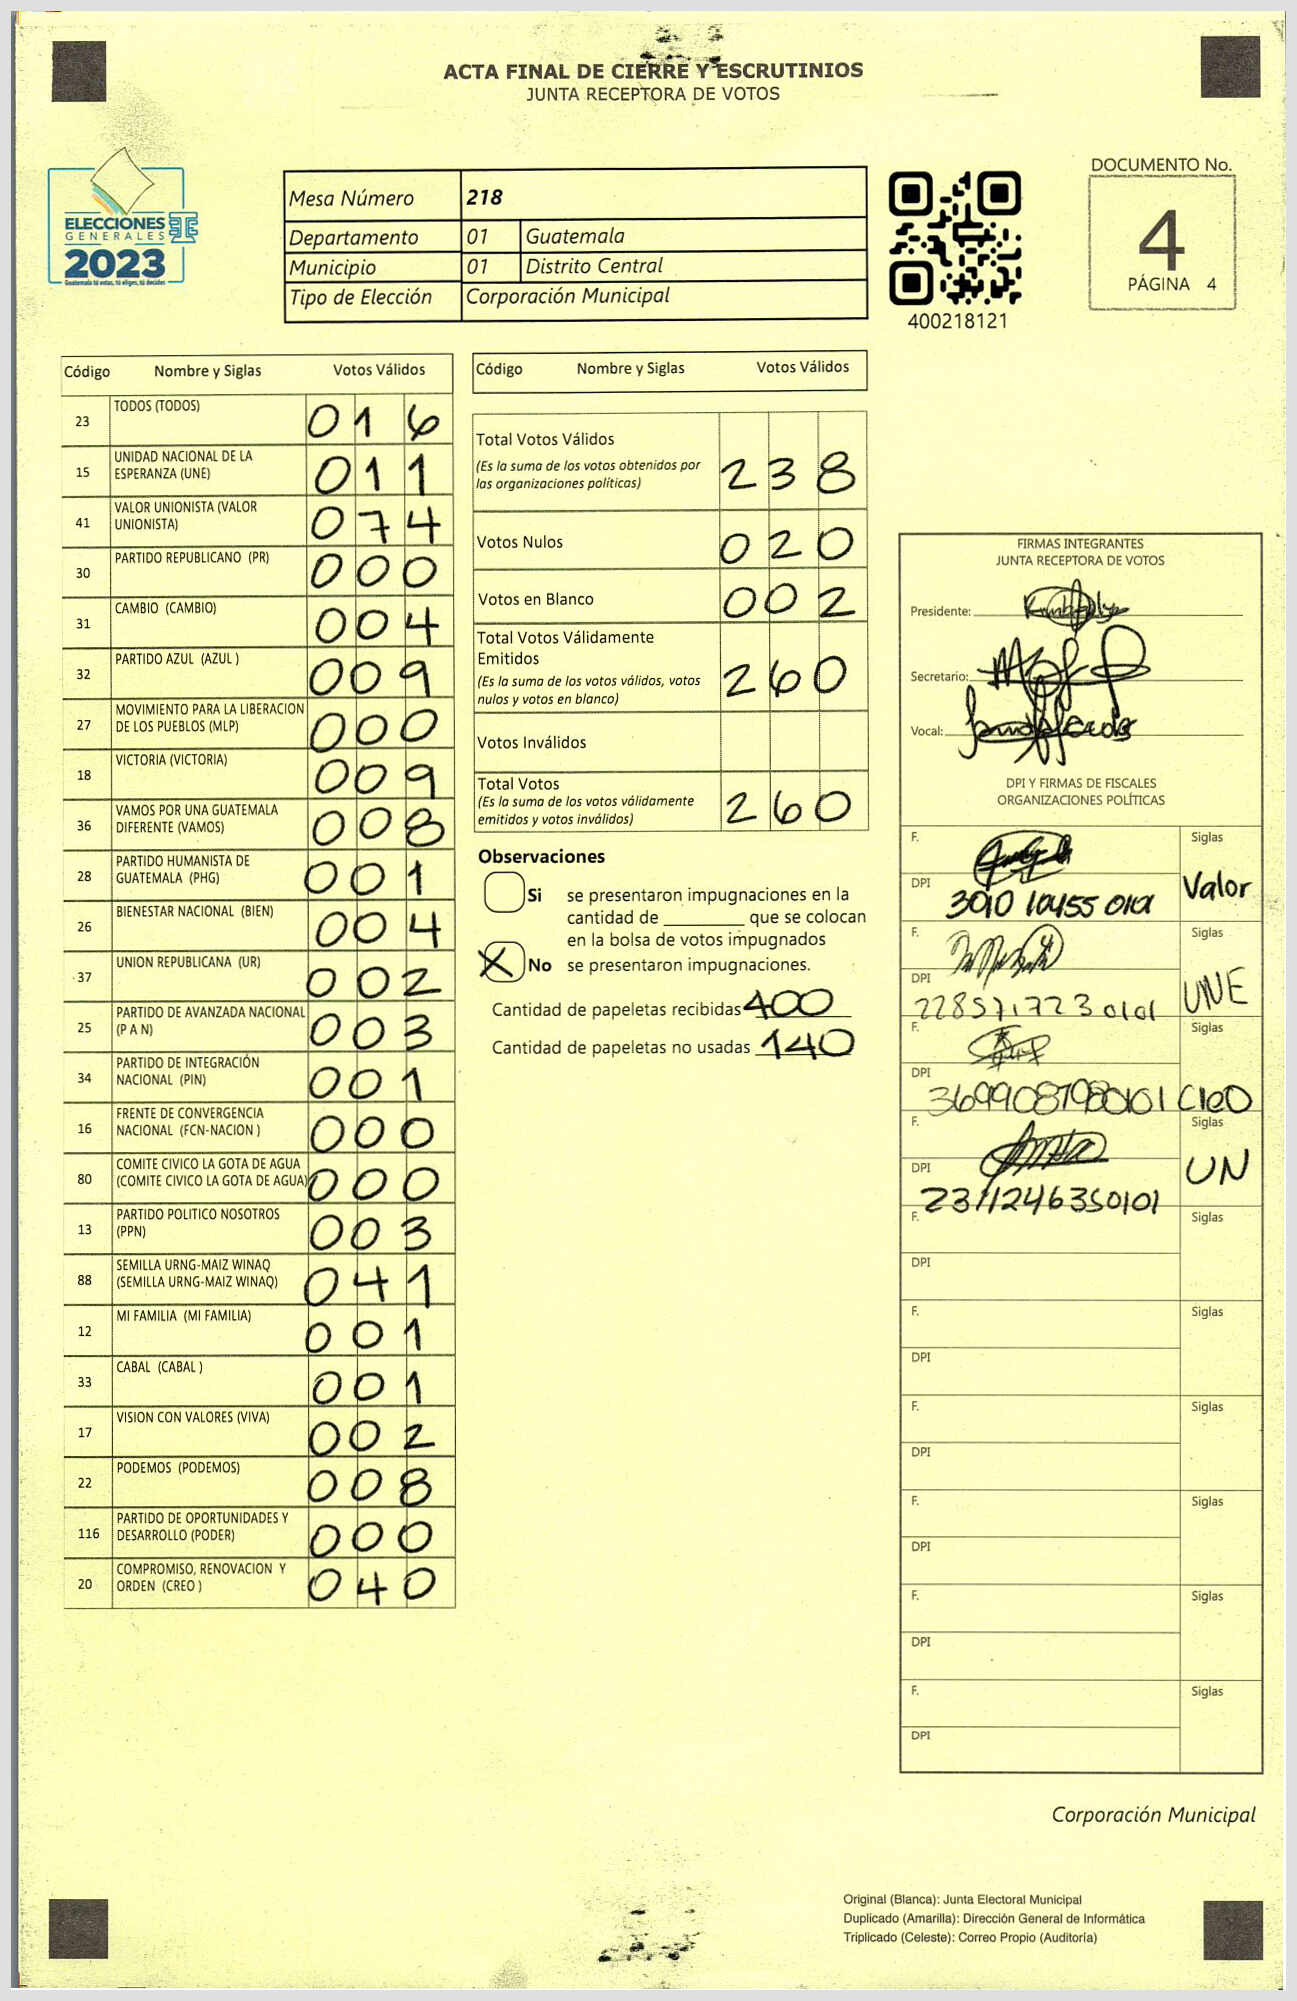 ACTA FINAL DE CIERRE Y ESCRUTINIOS
JUNTA RECEPTORA DE VOTOS
ELECCIONES
GENERALES
2023
Guatemala tú votas, tú eliges, tú decides
Mesa Número 218
Departamento 01 Guatemala
Municipio 01 Distrito Central
Tipo de Elección Corporación Municipal
400218121
DOCUMENTO No.
4
PÁGINA 4
Código Nombre y Siglas Votos Válidos
23 TODOS (TODOS) 016
15 UNIDAD NACIONAL DE LA
ESPERANZA (UNE) 011
41 VALOR UNIONISTA (VALOR
UNIONISTA) 074
30 PARTIDO REPUBLICANO (PR) 000
31 CAMBIO (CAMBIO) 004
32 PARTIDO AZUL (AZUL ) 009
27 MOVIMIENTO PARA LA LIBERACION
DE LOS PUEBLOS (MLP) 000
18 VICTORIA (VICTORIA) 009
36 VAMOS POR UNA GUATEMALA
DIFERENTE (VAMOS) 008
28 PARTIDO HUMANISTA DE
GUATEMALA (PHG) 001
26 BIENESTAR NACIONAL (BIEN) 004
37 UNION REPUBLICANA (UR) 002
25 PARTIDO DE AVANZADA NACIONAL
(P A N) 003
34 PARTIDO DE INTEGRACIÓN
NACIONAL (PIN) 001
16 FRENTE DE CONVERGENCIA
NACIONAL (FCN-NACION ) 000
80 COMITE CIVICO LA GOTA DE AGUA
(COMITE CIVICO LA GOTA DE AGUA) 000
13 PARTIDO POLITICO NOSOTROS
(PPN) 003
88 SEMILLA URNG-MAIZ WINAQ
(SEMILLA URNG-MAIZ WINAQ) 041
12 MI FAMILIA (MI FAMILIA) 001
33 CABAL (CABAL ) 001
17 VISION CON VALORES (VIVA) 002
22 PODEMOS (PODEMOS) 008
116 PARTIDO DE OPORTUNIDADES Y
DESARROLLO (PODER) 000
20 COMPROMISO, RENOVACION Y
ORDEN (CREO ) 040
Código Nombre y Siglas Votos Válidos
Total Votos Válidos
(Es la suma de los votos obtenidos por
las organizaciones políticas) 238
Votos Nulos 020
Votos en Blanco 002
Total Votos Válidamente
Emitidos
(Es la suma de los votos válidos, votos
nulos y votos en blanco) 260
Votos Inválidos
Total Votos
(Es la suma de los votos válidamente
emitidos y votos inválidos) 260
Observaciones
Si se presentaron impugnaciones en la
cantidad de ________ que se colocan
en la bolsa de votos impugnados
X No se presentaron impugnaciones.
Cantidad de papeletas recibidas 400
Cantidad de papeletas no usadas 140
FIRMAS INTEGRANTES
JUNTA RECEPTORA DE VOTOS
Presidente:
Secretario:
Vocal:
DPI Y FIRMAS DE FISCALES
ORGANIZACIONES POLÍTICAS
F. Siglas
DPI Valor
F. Siglas
DPI UNE
F. Siglas
DPI 3699087980101 CreO
F. Siglas
DPI UN
2311246350101
F. Siglas
DPI
F. Siglas
DPI
F. Siglas
DPI
F. Siglas
DPI
F. Siglas
DPI
F. Siglas
DPI
Corporación Municipal
Original (Blanca): Junta Electoral Municipal
Duplicado (Amarilla): Dirección General de Informática
Triplicado (Celeste): Correo Propio (Auditoría)